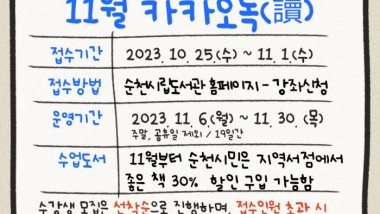 11월 카카오독(讀)
접수기간 2023. 10. 25.(수) ~ 11. 1.(수)
접수방법 순천시립도서관 홈페이지 - 강좌신청
운영기간 2023. 11. 6.(월) ~ 11. 30. (목)
주말, 공휴일 제외 / 19일간
수업도서 11월부터 순천시민은 지역서점에서
좋은 책 30% 할인 구입 가능함
수강생 모집은 선착순으로 진행하며, 접수인원 초과 시